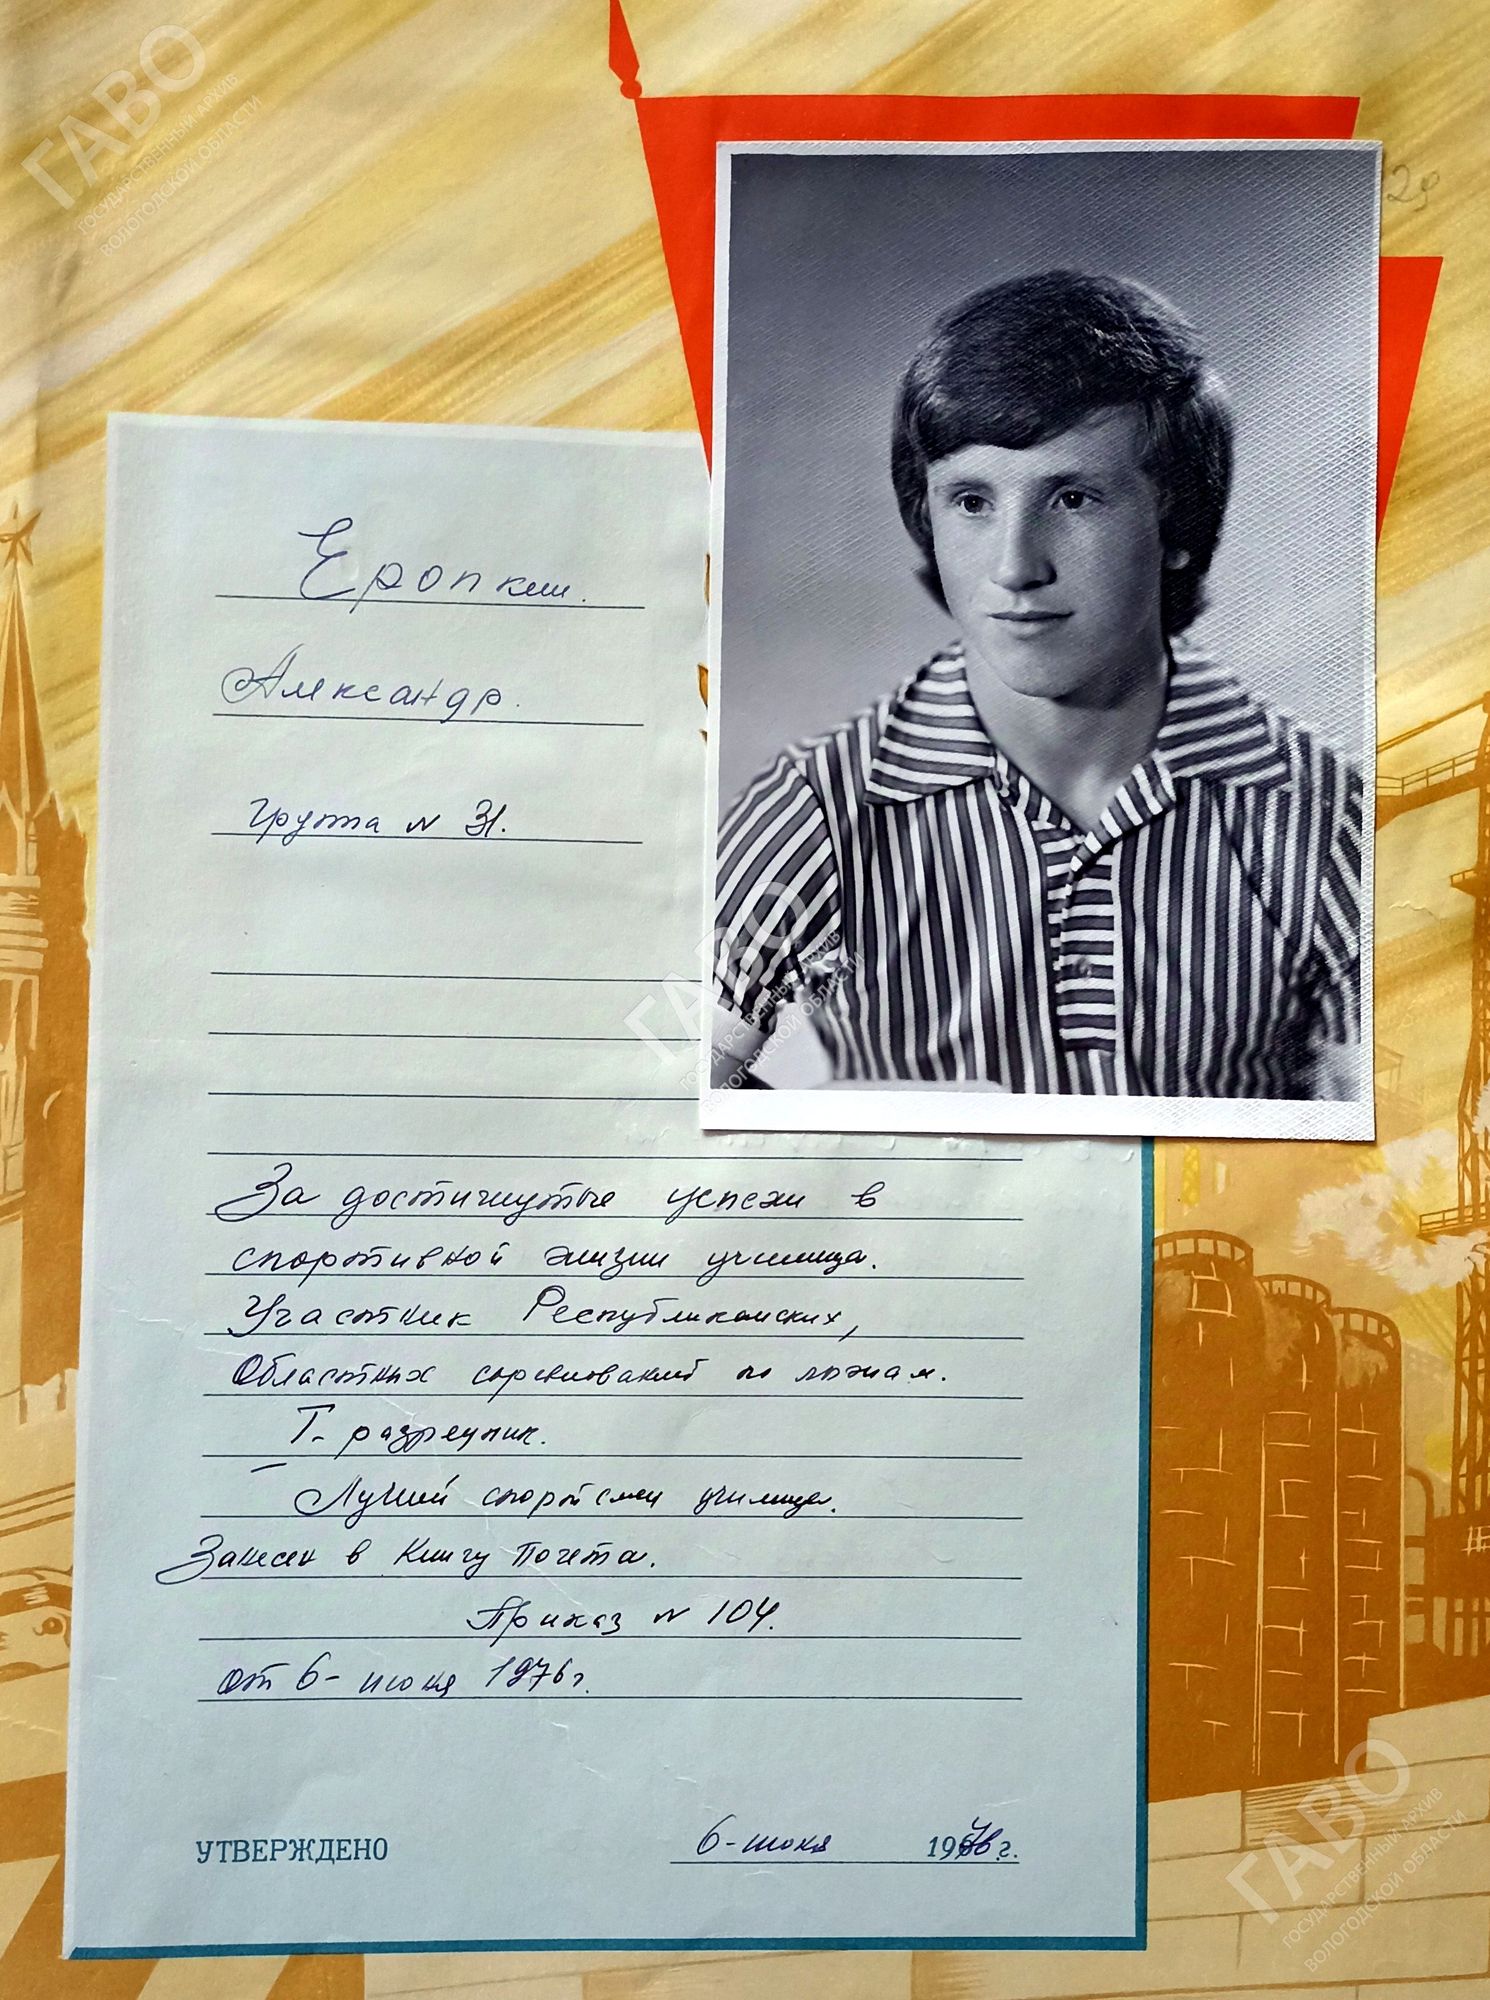 ГАВО
ГОСУДАРСТВЕННЫЙ АРХИВ
ВОЛОГОДСКОЙ ОБЛАСТИ
29
Еропкин.
Александр.
Группа N 31.
ГАВО
ГОСУДАРСТВЕННЫЙ АРХИВ
ВОЛОГОДСКОЙ ОБЛАСТИ
За достигнутые успехи в
спортивной жизни училища.
Участник Республиканских,
Областных соревнований по лыжам.
I - разрядник.
Лучший спортсмен училища.
Занесен в Книгу Почета.
Приказ N 104.
От 6 - июня 1976 г.
УТВЕРЖДЕНО 6 - июня 1976 г.
ГАВО
ГОСУДАРСТВЕННЫЙ АРХИВ
ВОЛОГОДСКОЙ ОБЛАСТИ